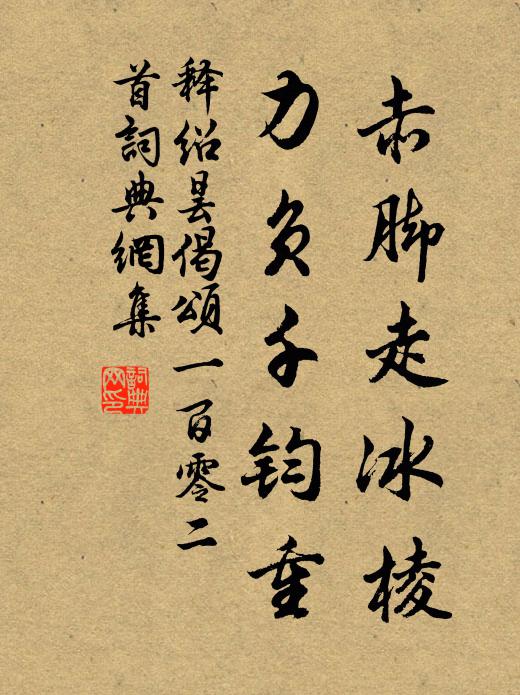 赤脚走冰棱
力负千钧重
释绍昙偈颂一百零二
首詞典網集
詞典網印